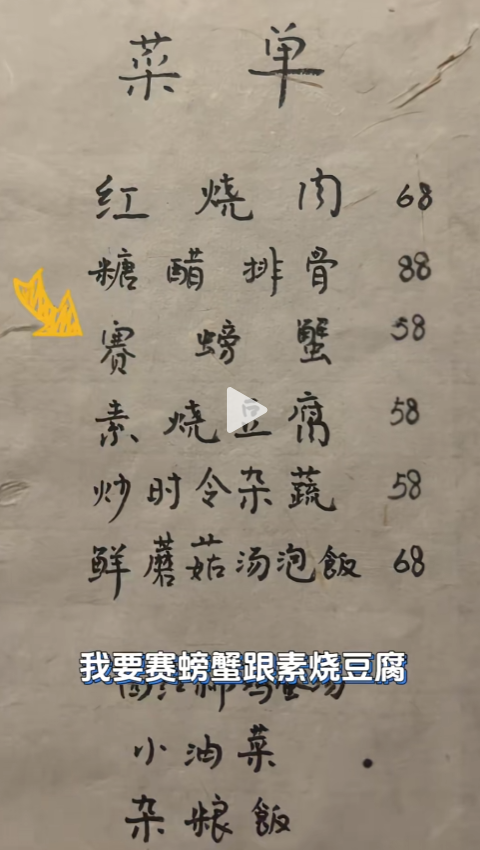 菜 单
红烧肉 68
糖醋排骨 88
赛螃蟹 58
素烧豆腐 58
炒时令杂蔬 58
鲜蘑菇汤泡飯 68
我要赛螃蟹跟素烧豆腐
小油菜
杂粮飯